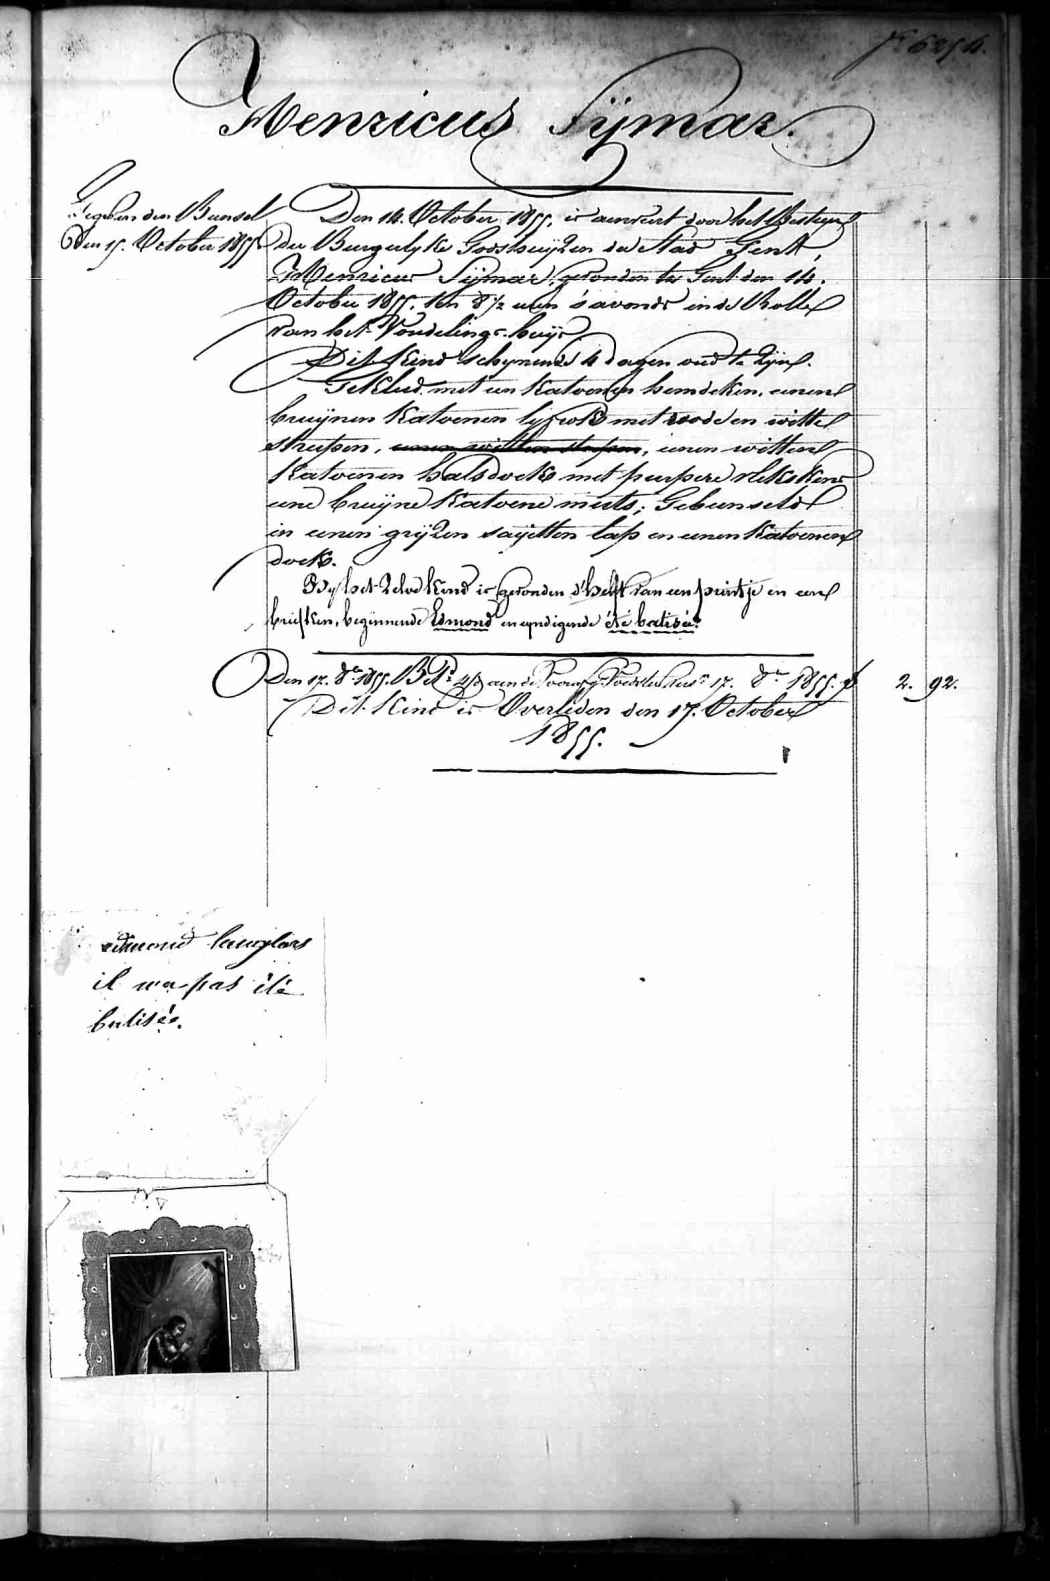 N° 6254.
Henricus Sijmar.
Gegeven den Bunsel
den 15. October 1855
Den 14. October 1855, is aenveert door het Bestuer
der Burgerlyke Godshuijzen der Stad Gent,
Henricus Sijmar, gevonden te Gent den 14.
October 1855. ten 8 1/2 uren s'avonds in de Rolle
van het Vondelings-huijs.
Dit Kind schynende 4 dagen oud te zijn.
Gekleed met een Katoenen hemdeken, eenen
bruijnen Katoenen lyfrok met roode en witte
streepen, eenen witten, eenen witten
Katoenen halsdoek met purpere vlekskens
eene bruijne Katoene muts; Gebunseld
in eenen grijzen sayetten lap en eenen Katoenen
doek.
By het zelve Kind is gevonden d'helft van een printje en een
briefken, beginnende Edmond en eyndigende été batisée.
Den 17. 8bre 1855. 17. 8bre 1855. f 2. 92.
Dit Kind is Overleden den 17. October
1855.
edmond
il n'a pas été
batisée.